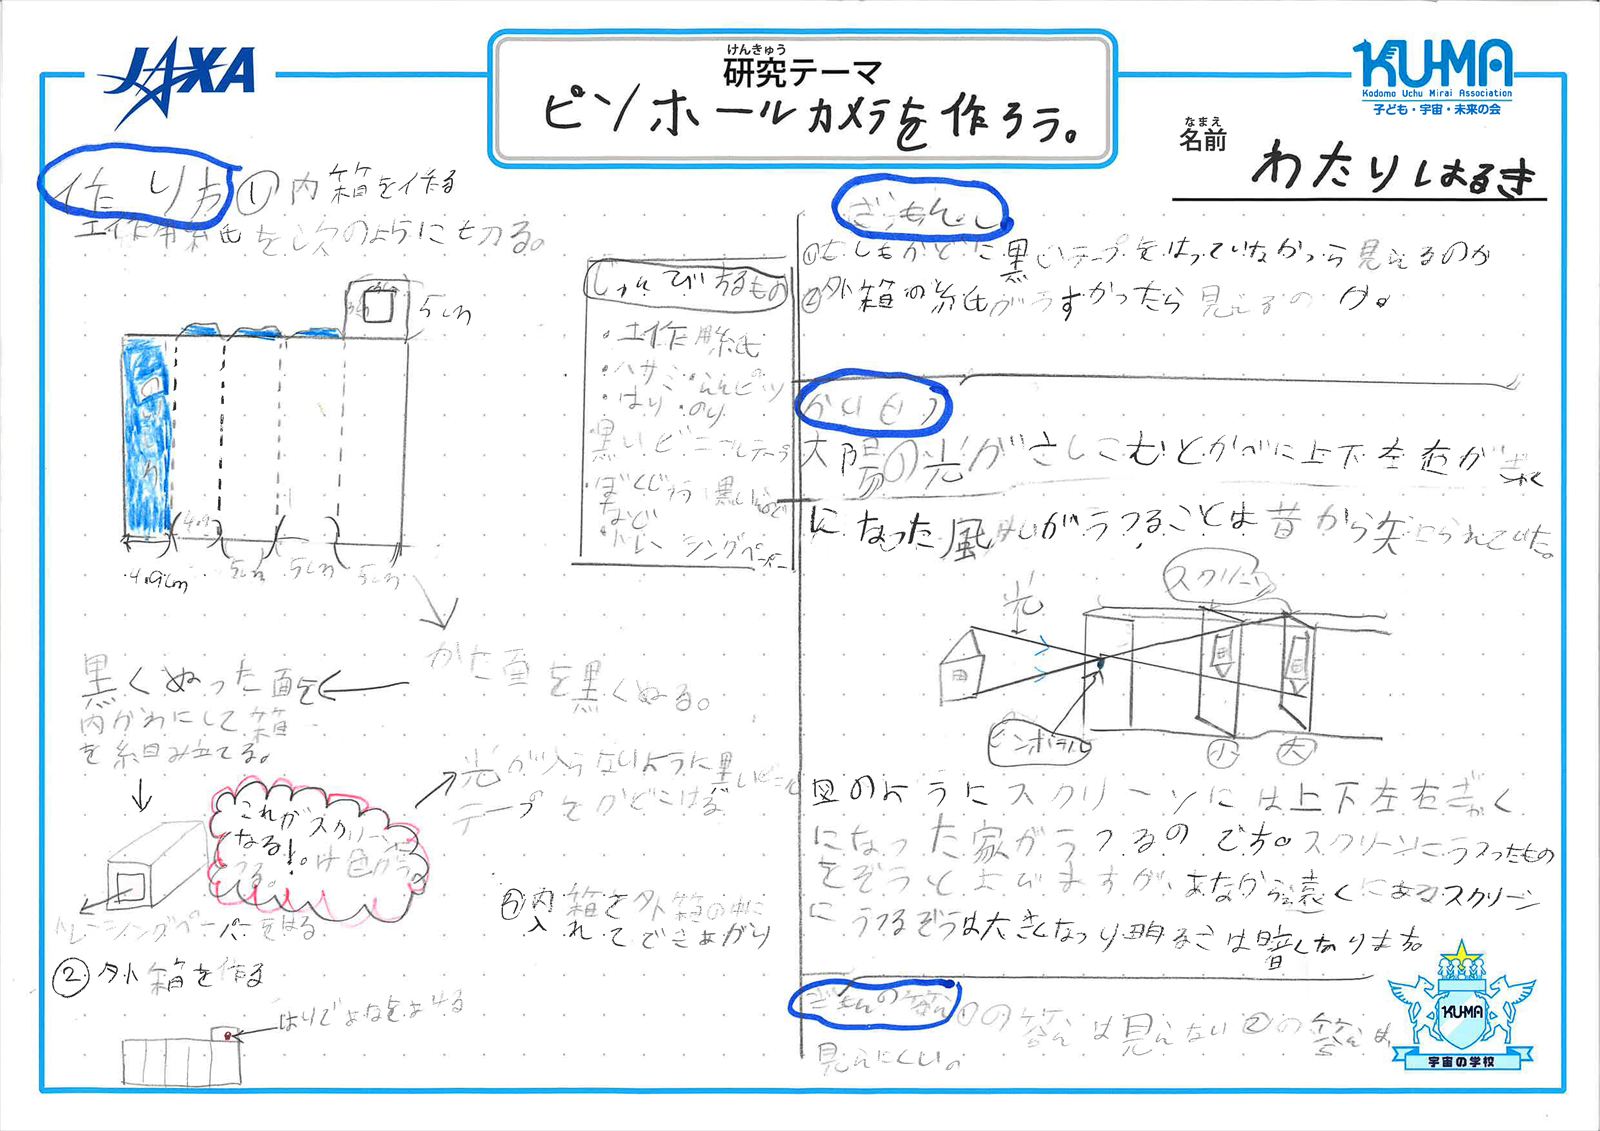 JAXA
けんきゅう
研究テーマ
ピンホールカメラを作ろう。
KU-MA
Kodomo Uchu Mirai Association
子ども・宇宙・未来の会
なまえ
名前
わたりはるき
作り方 ① 内箱を作る
工作用紙を次のように切る。
5cm
4.9
4.9cm 5cm 5cm 5cm
かた面を黒くぬる。
黒くぬった面を
内がわにして箱
を組み立てる。
これがスクリーンに
なる!。
トレーシングペーパーをはる
光が入らないように黒いビニール
テープをかどにはる
② 外箱を作る
はりであなをあける
③ 内箱を外箱の中に
入れてできあがり
じゅんびするもの
・工作用紙
・ハサミ・えんピツ
・はり・のり
黒いビニールテープ
・ぼくじゅう 黒いえのぐ
など
・トレーシングペーパー
ぎもん
①もしもかどに黒いテープをはっていなかったら見えるのか
②外箱の紙がうすかったら見えるのか。
かいせつ
太陽の光がさしこむとかべに上下左右がぎゃく
になった風けいがうつることは昔から知られていた。
光
スクリーン
ピンホール
小 大
図のようにスクリーンには上下左右ぎゃく
になった家がうつるのです。スクリーンにうつったもの
をぞうとよびますが、あなから遠くにあるスクリーン
にうつるぞうは大きくなり明るさは暗くなります。
ぎもんの答え ①の答えは見えない②の答えは
見えにくい。
KU-MA
宇宙の学校